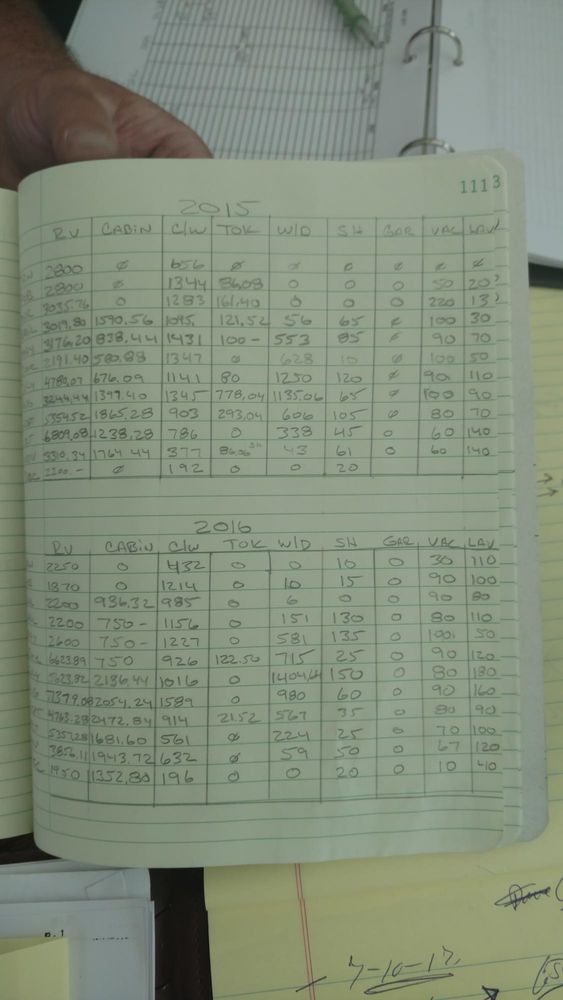 1113
2015
RV CABIN C/W TOK W/D SH GAR VAC LAV
2800 ø 656 ø ø ø ø ø ø
2800 ø 1344 86.08 0 0 0 50 20
3035.76 0 1283 161.40 0 0 0 220 13
3019.80 1590.56 1095. 121.52 56 65 ø 100 30
3176.20 838.44 1431 100- 553 85 ø 90 70
2191.40 580.88 1347 ø 628 10 ø 100 50
4780.07 676.09 1141 80 1250 120 ø 90 110
3244.44 1397.40 1345 778.04 1135.06 65 ø 100 90
5354.52 1865.28 903 293.04 606 105 ø 80 70
6809.08 1238.28 786 0 338 45 0 60 140
3310.34 1764.44 377 86.06 43 61 0 60 140
2200.- ø 192 0 0 20
2016
RV CABIN C/W TOK W/D SH GAR VAC LAV
2250 0 432 0 0 10 0 30 110
1870 0 1214 0 10 15 0 90 100
2200 936.32 985 0 6 0 0 90 80
2200 750- 1156 0 151 130 0 80 110
2600 750- 1227 0 581 135 0 100 50
6623.89 750 926 122.50 715 25 0 90 120
5623.82 2186.44 1016 0 1404.64 150 0 80 180
7379.08 2054.24 1589 0 980 60 0 90 160
4763.28 2472.84 914 21.52 567 35 0 80 90
5357.28 1681.60 561 ø 224 25 0 70 100
3856.11 1943.72 632 ø 59 50 0 67 120
1950 1352.80 196 0 0 20 0 10 40
7-10-17